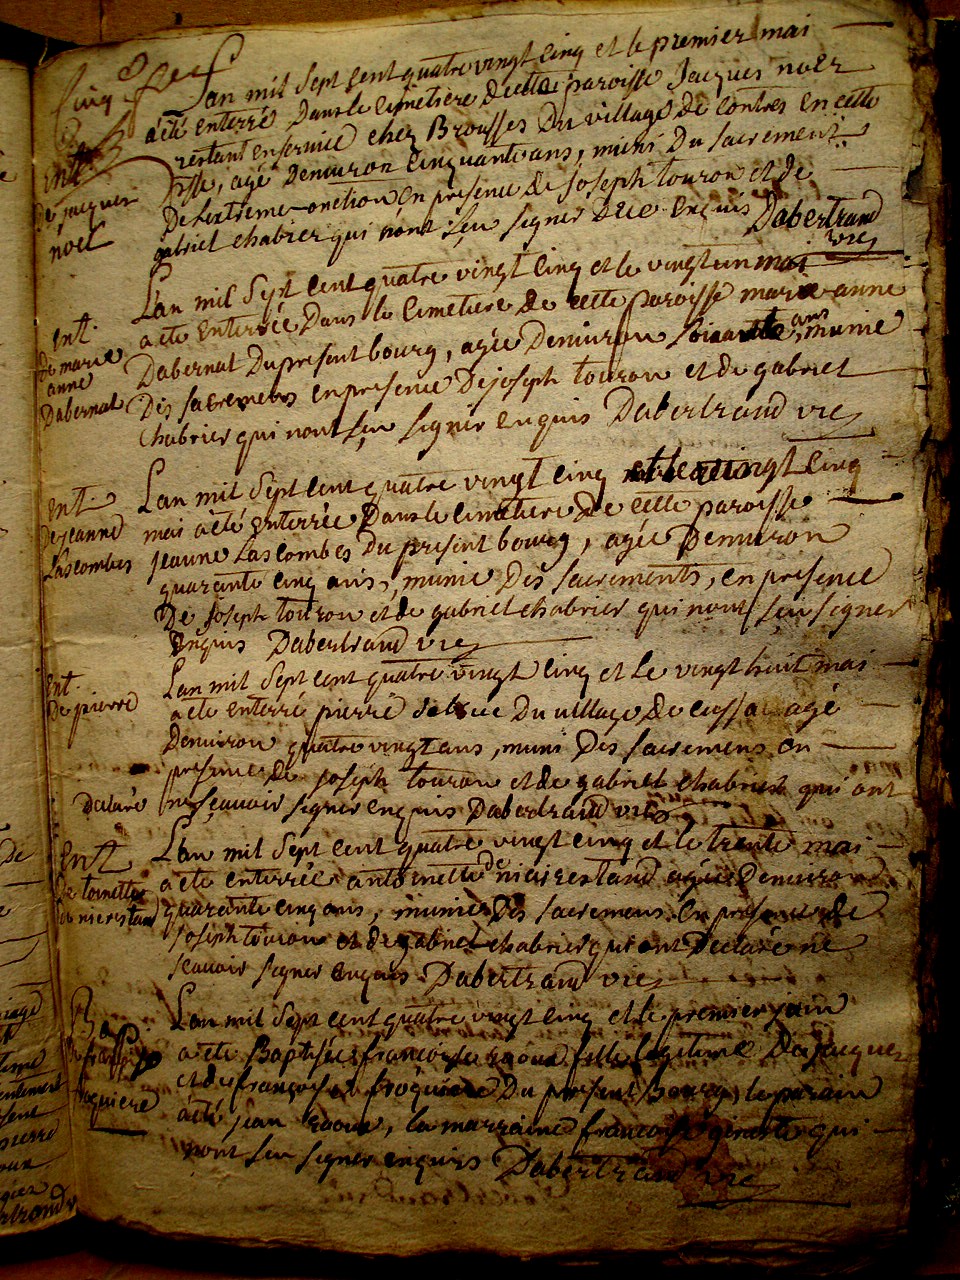 Cinq
Lan mil sept cent quatre vingt cinq et le premier mai
a été enterré dans le cimetiere de cette paroisse Jacques noer
restant en service chez Brousses du village de Contres en cette
psse, agé denviron cinquante ans, muni du sacrement
De Lextreme-onction en présence de joseph touron et de
gabriel chabrier qui nont sçu signer de ce enquis Dabertrand
vre
Ent.
de jacques
noel
Lan mil sept cent quatre vingt cinq et le vingt un mai
a ete enterrée dans le Cimetiere de cette paroisse marie anne
Dabernat du present bourg, agée denviron soixante ans, munie
Des sacremens en presence de joseph touron et de gabriel
chabrier qui nont sçu signer enquis Dabertrand vre
Ent.
de marie
anne
Dabernat
Lan mil sept cent quatre vingt cinq et le vingt cinq
mai a été enterrée dans le cimetiere de cette paroisse
jeanne Lascombes du present bourg, agée denviron
quarante cinq ans, munie des sacrements, en presence
De joseph touron et de gabriel chabrier qui nont sçu signer
enquis Dabertrand vre
Ent.
de jeanne
Lascombes
Lan mil sept cent quatre vingt cinq et le vingt huit mai
a ete enterré pierre du village de cussa agé
denviron quatre vingt ans, muni des sacremens en
presence de joseph touron et de gabriel chabrier qui ont
declaré ne sçauoir signer enquis Dabertrand vre
Ent.
De pierre
Lan mil sept cent quatre vingt cinq et le trente mai
a ete enterrée antoinette de niairestand agée denviron
quarante cinq ans, munie des sacremens en presence de
joseph touron et de gabriel chabrier qui ont declaré ne
scauoir signer enquis Dabertrand vre
Ent
De toinette
Lan mil sept cent quatre vingt cinq et le premier juin
a été Baptisée françoise raoux fille legitime de jacques
et de françoise froquiere du present Bourg, le parain
a été jean raoux, la marraine françoise qui
nont sçu signer enquis Dabertrand vre
Bap.